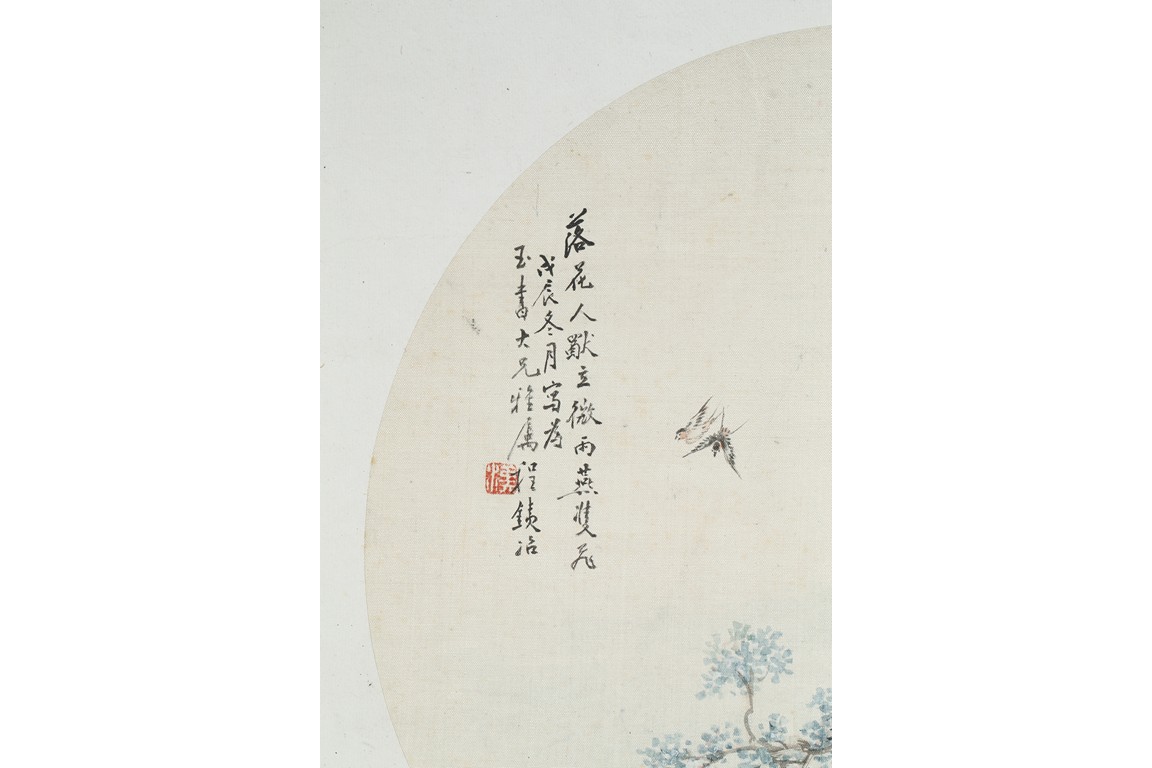 落花人獸立微雨燕雙飛
戊辰冬月寫為
玉書大兄雅屬程銕冶